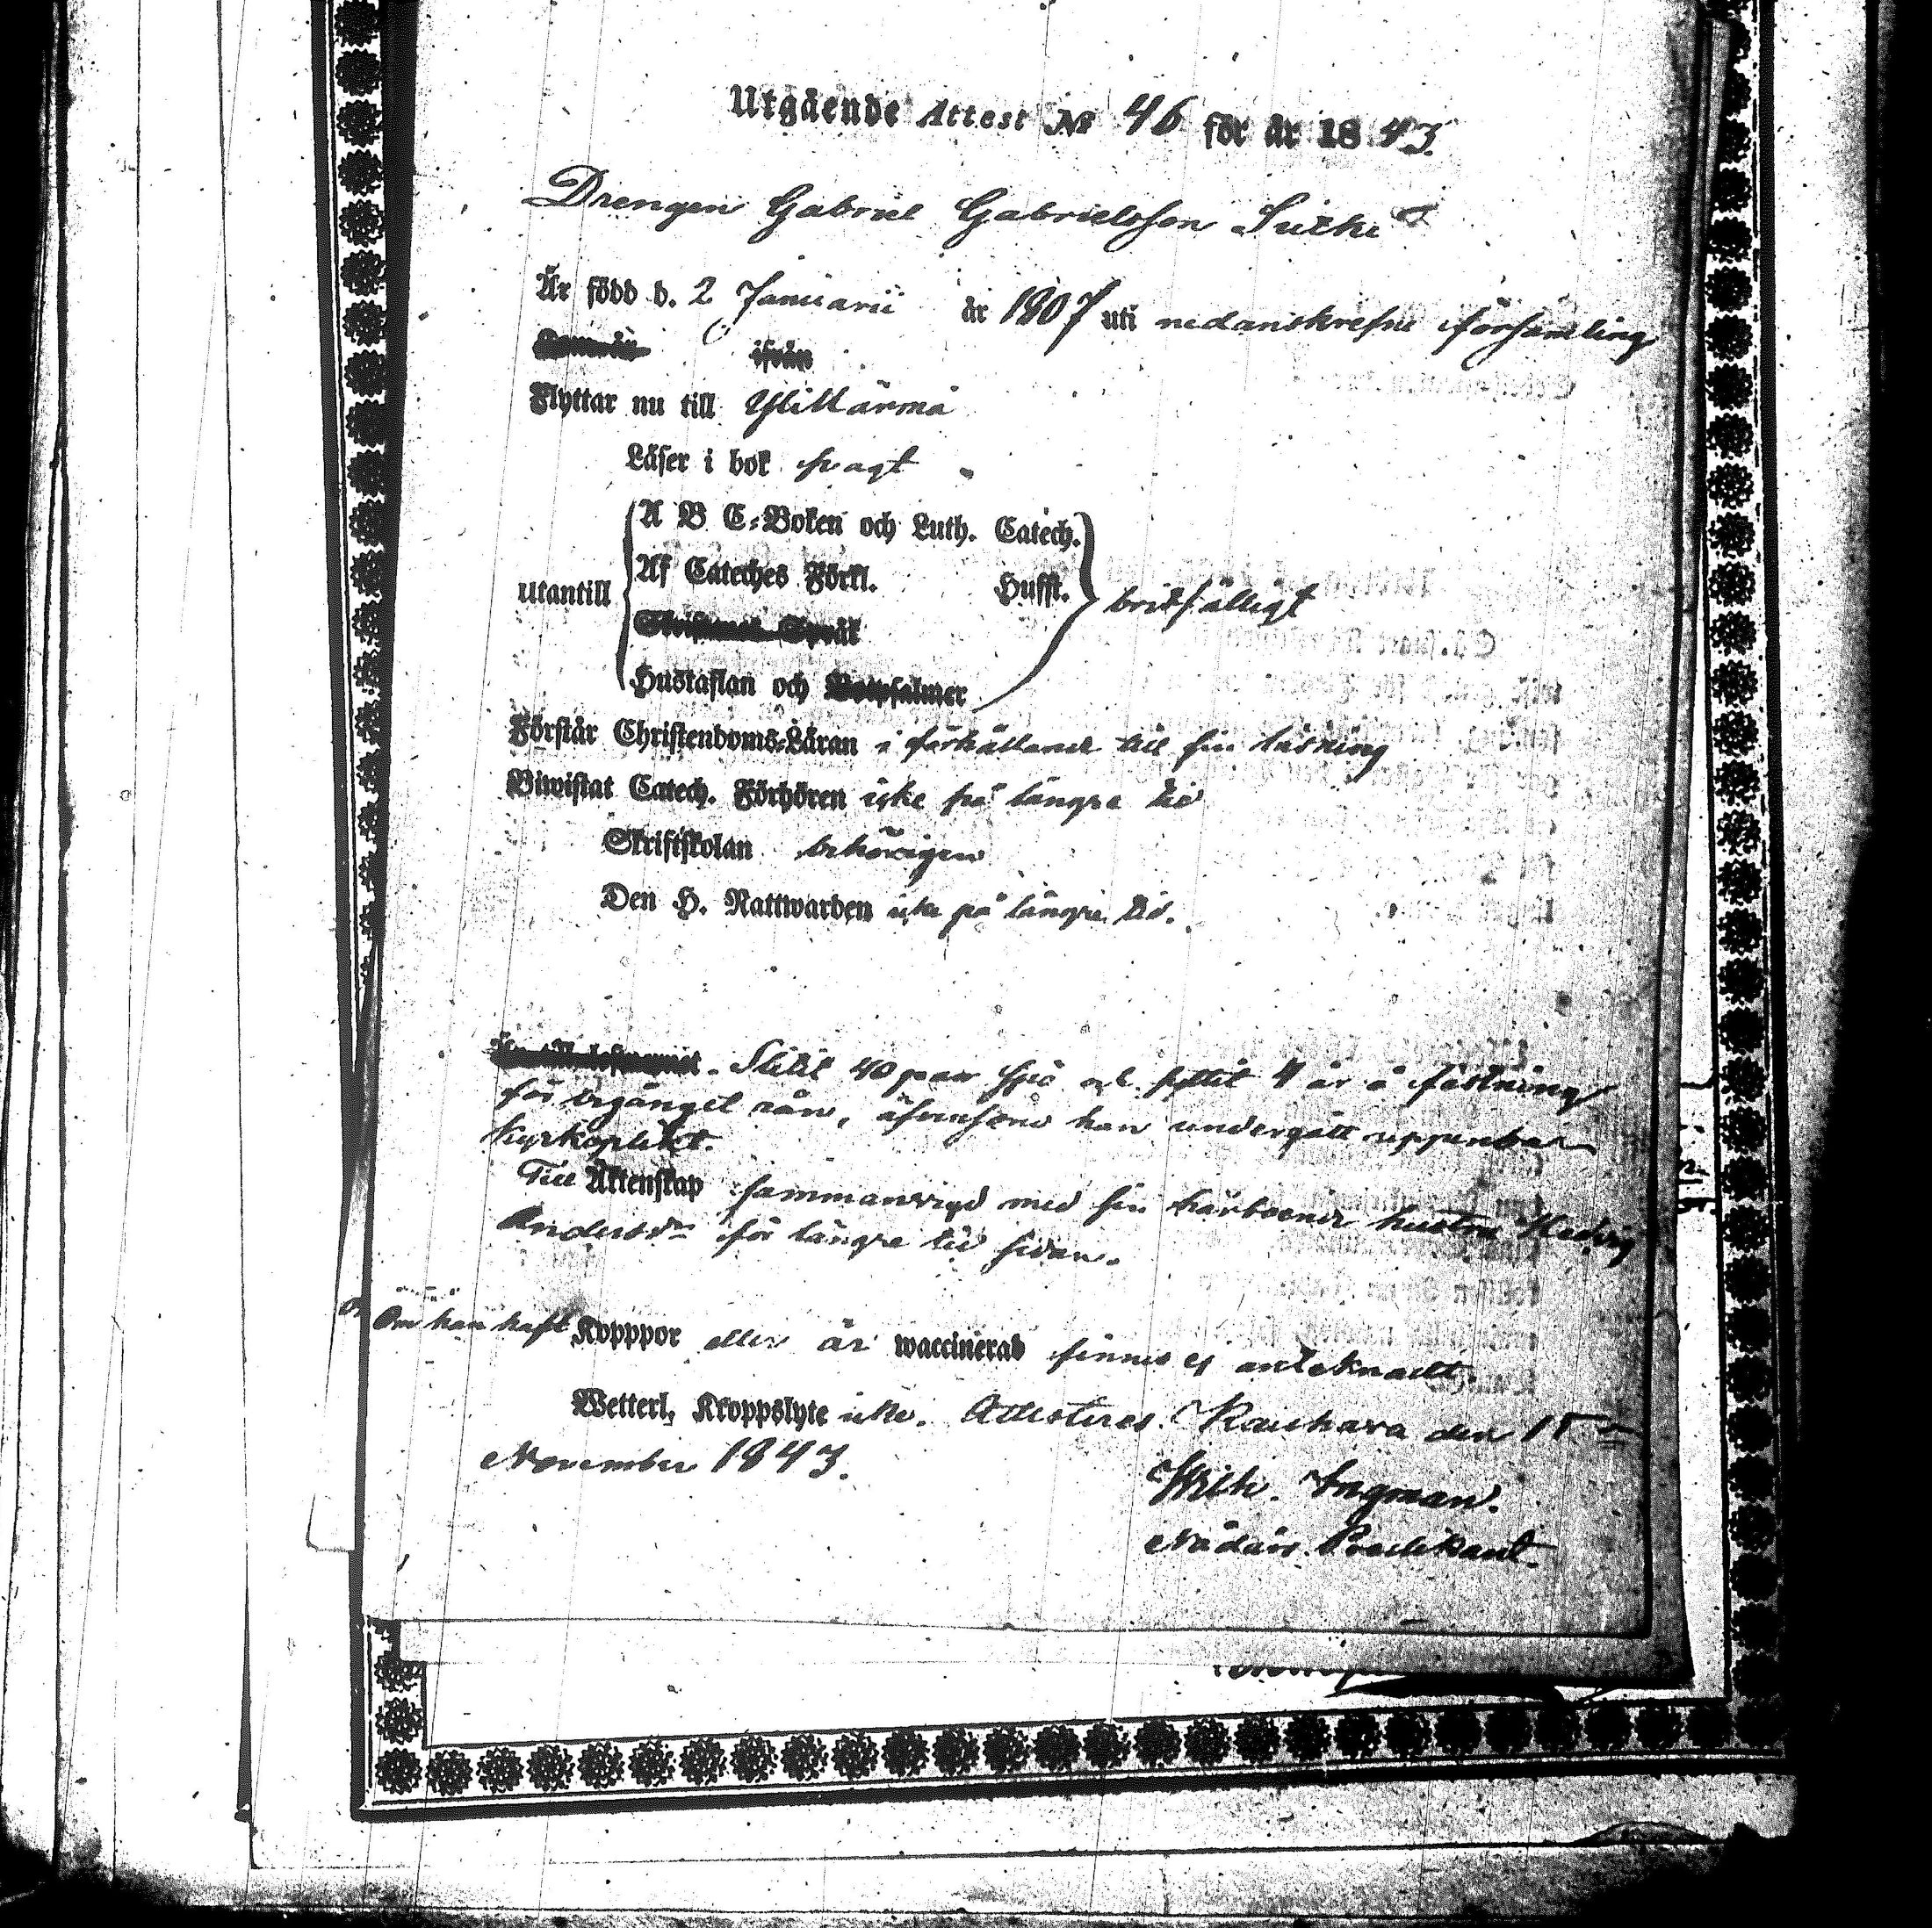 Utgående Attest № 46 för år 1843.
Drengen Gabriel Gabrielsson
Är född d. 2 Januarii år 1807 uti nedanskrefne församling
ifrån
Flyttar nu till Ylihärmä
Läser i bok svagt
Utantill
A B C-Boken och Luth. Catech.
Af Cateches Förkl. Hufft.
bristfälligt
Hustaflan och
Förstår Christendoms-Läran i förhållande till sin läsning
Biwistat Catech. Förhören icke på längre tid
Skriftskolan behörigen
Den H. Nattwarden icke på längre tid.
Slitit 40 par spö och suttit 4 år å fästning
för begånget rån, äfvensom han undergått uppenbar
kyrkoplikt.
Till Äktenskap sammanvigd med sin härboende hustru Hedvig
Andersdr för längre tid sedan.
Om han haft Kopppor eller är waccinerad finnes ej anteknadt.
Wetterl. Kroppslyte icke. Attesteras. Kauhava den 15
November 1843.
Wilh. Ingman.
Nådårs Predikant.